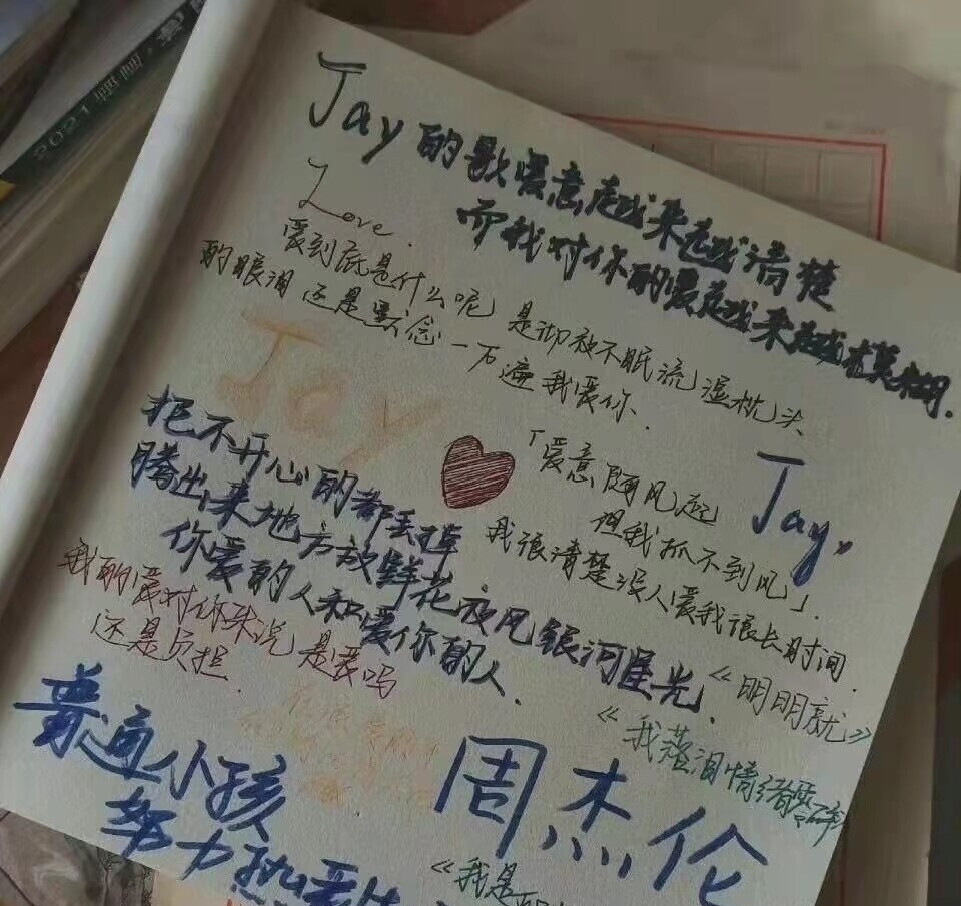 2021
Jay的歌爱意越来越清楚
而我对你的爱越来越模糊.
Love.
爱到底是什么呢 是彻夜不眠流湿枕头
的眼泪 还是默念一万遍我爱你.
Jay
「爱意随风起
但我抓不到风」.
Jay,
把不开心的都丢掉
腾出来地方放鲜花夜风银河星光.
你爱的人和爱你的人.
我很清楚没人爱我很长时间.
我的爱对你来说是爱吗
还是负担.
《明明就》
《我落泪情绪零碎》
普通小孩
努力热爱生
周杰伦
《我是如